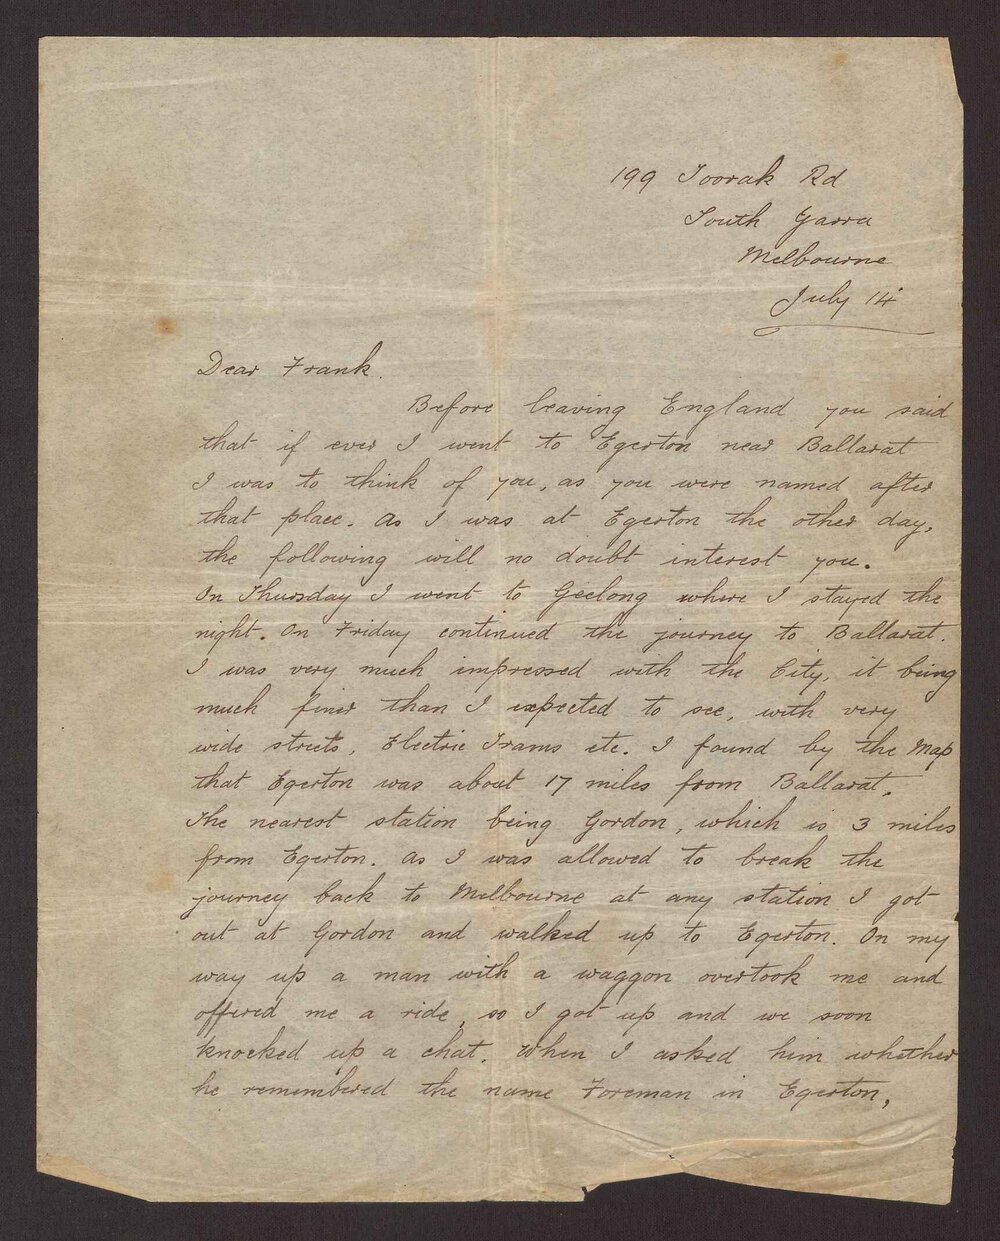 199 Toorak Rd
South Yarra
Melbourne
July 14
Dear Frank.
Before leaving England you said
that if ever I went to Egerton near Ballarat
I was to think of you, as you were named after
that place. As I was at Egerton the other day,
the following will no doubt interest you.
On Thursday I went to Geelong where I stayed the
night. On Friday continued the journey to Ballarat.
I was very much impressed with the City, it being
much finer than I expected to see, with very
wide streets, Electric Trams etc. I found by the Map
that Egerton was about 17 miles from Ballarat,
The nearest station being Gordon, which is 3 miles
from Egerton. As I was allowed to break the
journey back to Melbourne at any station I got
out at Gordon and walked up to Egerton. On my
way up a man with a waggon overtook me and
offered me a ride, so I got up and we soon
knocked up a chat. When I asked him whether
he remembered the name Foreman in Egerton,